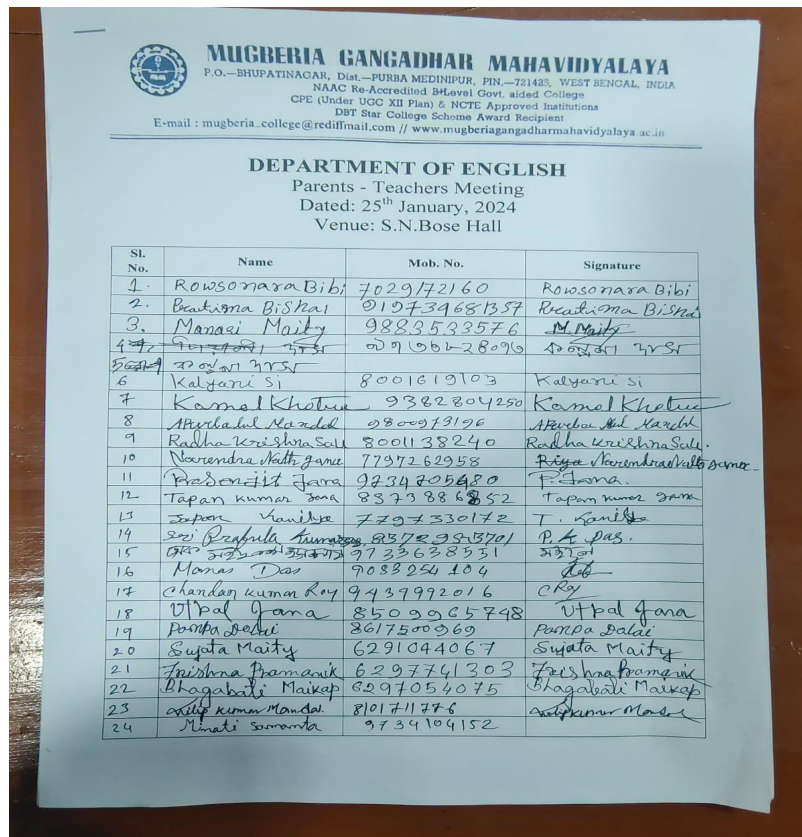 MUGBERIA GANGADHAR MAHAVIDYALAYA
P.O.—BHUPATINAGAR, Dist.—PURBA MEDINIPUR, PIN.—721425, WEST BENGAL, INDIA
NAAC Re-Accredited B+Level Govt. aided College
CPE (Under UGC XII Plan) & NCTE Approved Institutions
DBT Star College Scheme Award Recipient
E-mail : mugberia_college@rediffmail.com // www.mugberiagangadharmahavidyalaya.ac.in
DEPARTMENT OF ENGLISH
Parents - Teachers Meeting
Dated: 25th January, 2024
Venue: S.N.Bose Hall
Sl. No. Name Mob. No. Signature
1. Rowsonara Bibi 7029172160 Rowsonara Bibi
2. Pratima Bishai Pratima Bishai
3. Manasi Maity 9883533576 M. Maity
4
5
6 Kalyani Si 8001619103 Kalyani Si
7 Kamal Khatua 9382804250 Kamal Khatua
8 Mandal 9800973196 Mandal
9 Radha Krishna Sau 8001138240 Radha Krishna Sau.
10 Narendra Nath Jana 7797262958 Narendra Nath Jana
11 Prasenjit Jana P. Jana.
12 Tapan Kumar Jana Tapan Kumar Jana
13 7797330172 T.
14 Sri Prafulla Kumar P. K Das.
15 9733638551
16 Manas Das 9083254104
17 Chandan Kumar Roy 9437992016 C Roy
18 Utpal Jana 8509965748 Utpal Jana
19 Pampa Dalai 8617500969 Pampa Dalai
20 Sujata Maity 6291044067 Sujata Maity
21 Pramanik 6297741303 Pramanik
22 Bhagabati Maikap 6297054075 Bhagabati Maikap
23 Dilip Kumar Mandal 8101711776 Dilip Kumar Mandal
24 Minati Samanta 9734104152